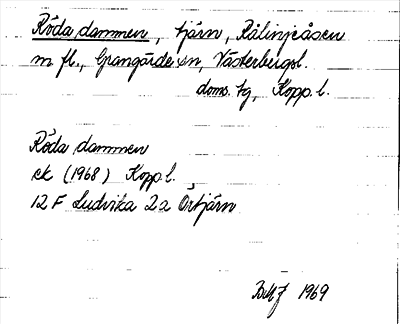 Röda dammen, tjärn, Rålinjeåsen
m fl., Grangärde sn, Västerbergsl.
doms. hg, Kopp. l.
Röda dammen
ek (1968) Kopp. l.
12 F Ludvika 2 a Örtjärn
1969